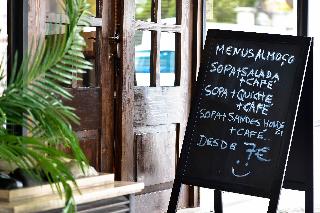 MENUS ALMOÇO
SOPA+SALADA
+CAFÉ
SOPA+QUICHE
+CAFÉ
SOPA+SANDES
+CAFÉ
DESDE 7€